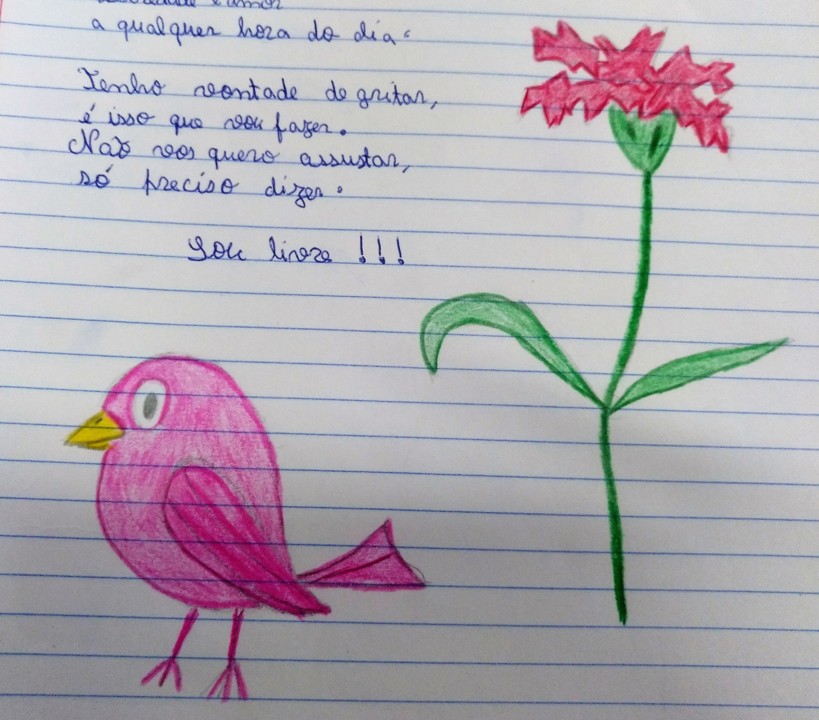 a qualquer hora do dia.
Tenho vontade de gritar,
é isso que vou fazer.
Não vos quero assustar,
só preciso dizer.
Sou livre !!!